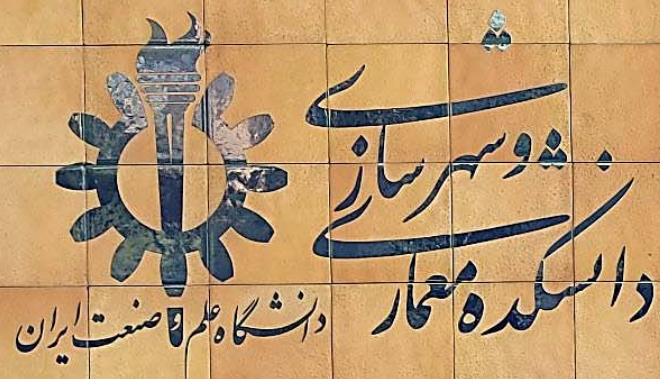 دانشکده معماری
و شهرسازی
دانشگاه علم و صنعت ایران